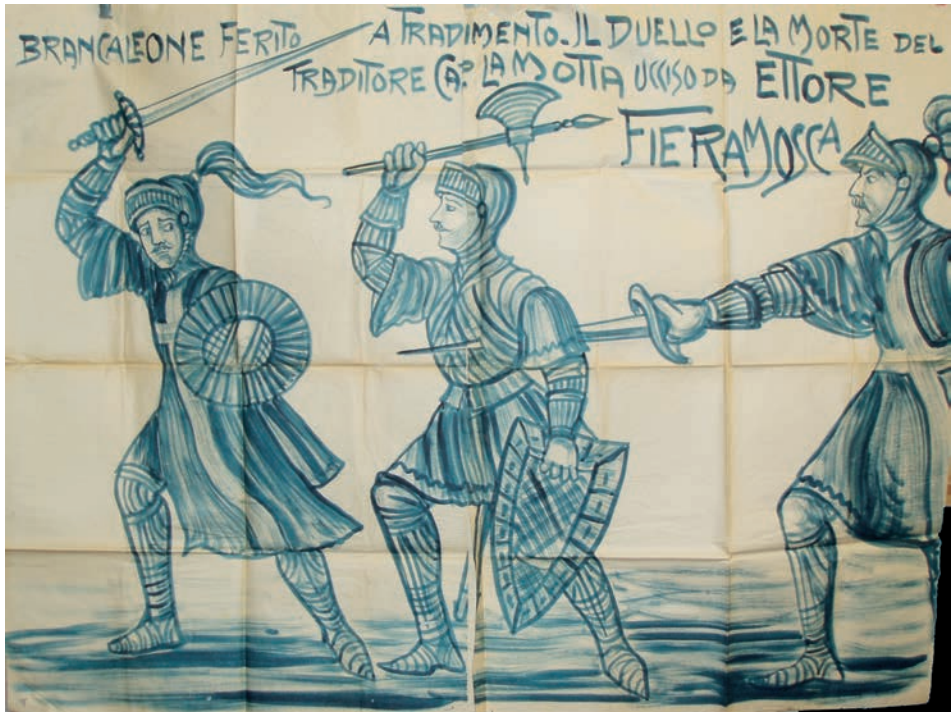 BRANCALEONE FERITO A TRADIMENTO. IL DUELLO E LA MORTE DEL
TRADITORE CAP.º LA MOTTA UCCISO DA ETTORE
FIERAMOSCA